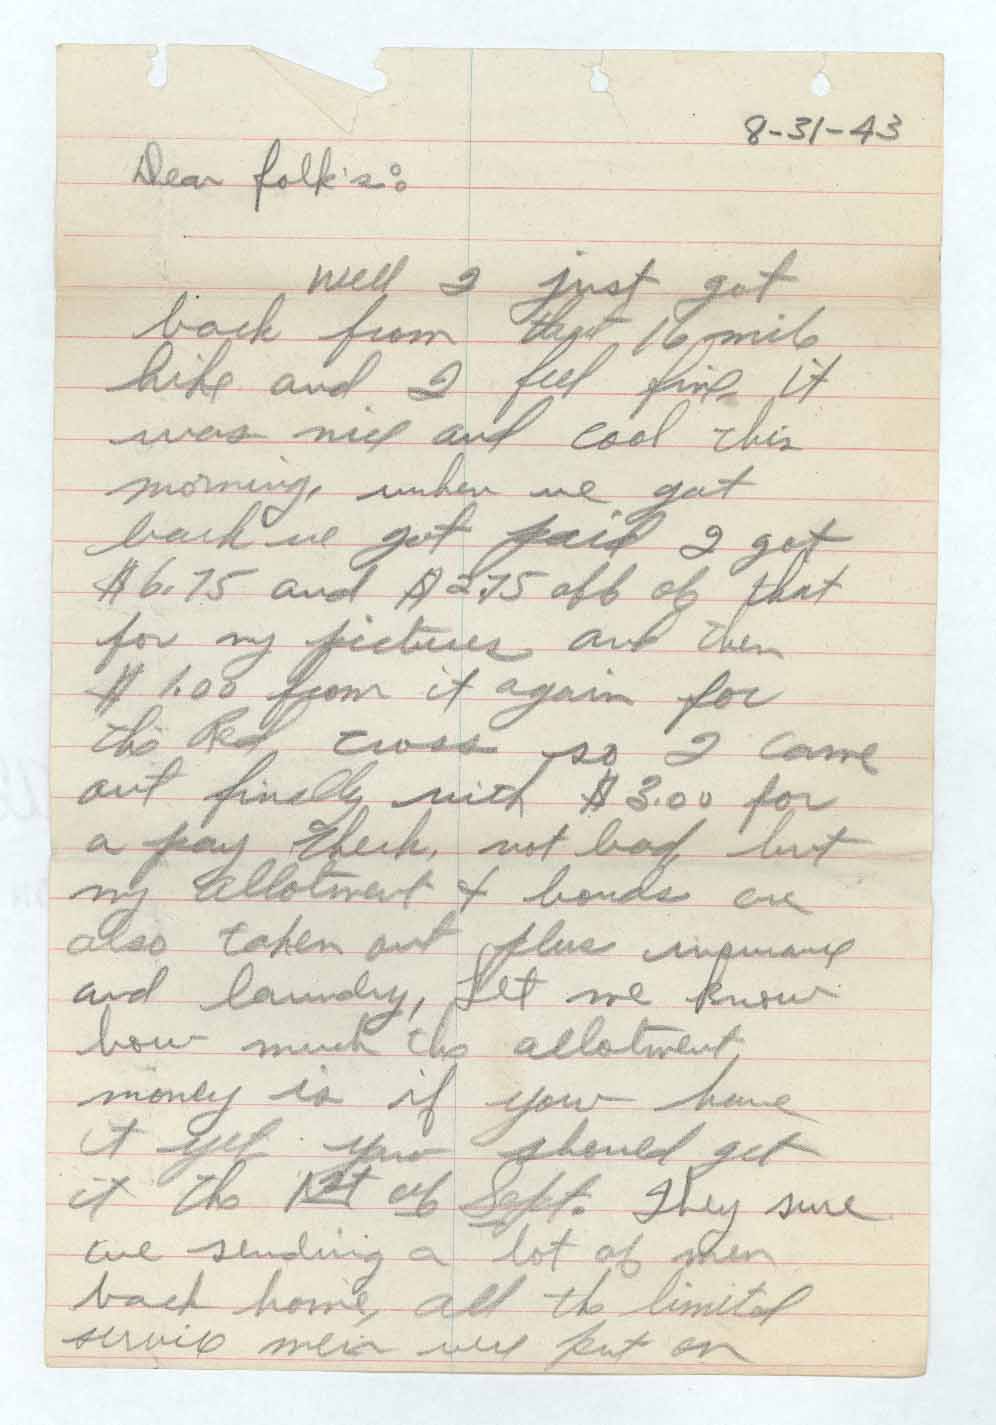 8-31-43
Dear folk's:
Well I just got
back from that 16 mile
hike and I feel fine it
was nice and cool this
morning, when we got
back we got paid I got
$6.75 and $2.75 off of that
for my pictures and then
$1.00 from it again for
the Red cross so I came
out finally with $3.00 for
a pay check, not bad but
my allotment & bonds are
also taken out plus insurance
and laundry, Let me know
how much the allotment
money is if your have
it yet your should get
it the 1st of Sept. They sure
are sending a lot of men
back home, all the limited
service men were put on